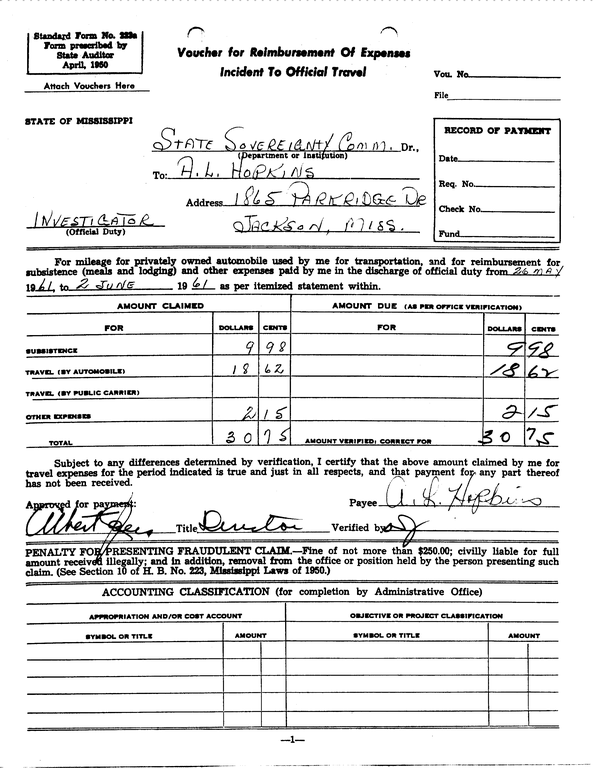 Standard Form No. 223a
Form prescribed by
State Auditor
April, 1950
Attach Vouchers Here
Voucher for Reimbursement Of Expenses
Incident To Official Travel
Vou. No.
File
STATE OF MISSISSIPPI
STATE SOVEREIGNTY COMM. Dr.,
(Department or Institution)
To: A. L. HOPKINS
Address 1865 PARKRIDGE DR
JACKSON, MISS.
INVESTIGATOR
(Official Duty)
RECORD OF PAYMENT
Date
Req. No.
Check No.
Fund
For mileage for privately owned automobile used by me for transportation, and for reimbursement for
subsistence (meals and lodging) and other expenses paid by me in the discharge of official duty from 26 MAY
1961, to 2 JUNE 1961 as per itemized statement within.
AMOUNT CLAIMED AMOUNT DUE (AS PER OFFICE VERIFICATION)
FOR DOLLARS CENTS FOR DOLLARS CENTS
SUBSISTENCE 9 98 9 98
TRAVEL (BY AUTOMOBILE) 18 62 18 62
TRAVEL (BY PUBLIC CARRIER)
OTHER EXPENSES 2 15 2 15
TOTAL 30 75 AMOUNT VERIFIED; CORRECT FOR 30 75
Subject to any differences determined by verification, I certify that the above amount claimed by me for
travel expenses for the period indicated is true and just in all respects, and that payment for any part thereof
has not been received.
Approved for payment: Payee A. L. Hopkins
Albert Jones Title Director Verified by
PENALTY FOR PRESENTING FRAUDULENT CLAIM.—Fine of not more than $250.00; civilly liable for full
amount received illegally; and in addition, removal from the office or position held by the person presenting such
claim. (See Section 10 of H. B. No. 223, Mississippi Laws of 1950.)
ACCOUNTING CLASSIFICATION (for completion by Administrative Office)
APPROPRIATION AND/OR COST ACCOUNT OBJECTIVE OR PROJECT CLASSIFICATION
SYMBOL OR TITLE AMOUNT SYMBOL OR TITLE AMOUNT
—1—